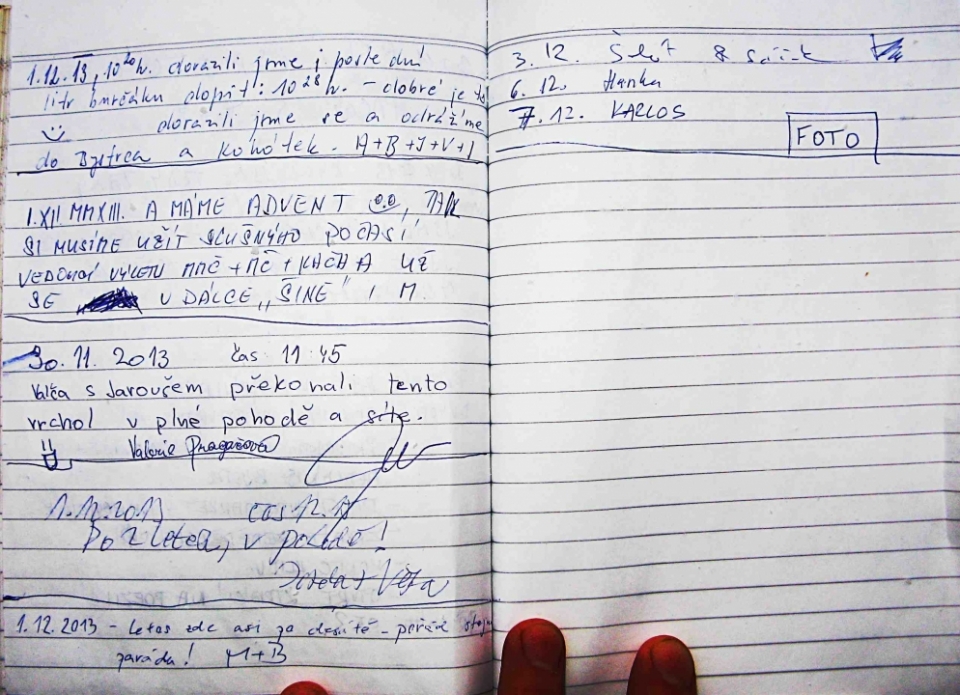 1.12.13, 10²⁰h. dorazili jsme i poslední
litr burčáku dopít: 10²⁸h. - dobré je to
dorazili jsme se a odrážíme
do Bystrca a kohótek. A+B+J+V+I
1.XII.MMXIII. A MÁME ADVENT , TAK
SI MUSÍME UŽÍT SLUŠNÝHO POČASÍ
VEDOUCÍ VÝLETU MMČ + MČ + KÁČA A UŽ
SE V DÁLCE „ŠINE" I M.
30.11.2013 čas 11:45
Valča s Jaroušem překonali tento
vrchol v plné pohodě a síle.
Valerie
1.12.2013 čas 12.17
Po 2 letech, v pohodě!
+ Věra
1.12.2013 - letos zde asi po desáté - pořád stejná
paráda! M+B
3.12. 8
6.12. Hanka
7.12. KARLOS
FOTO